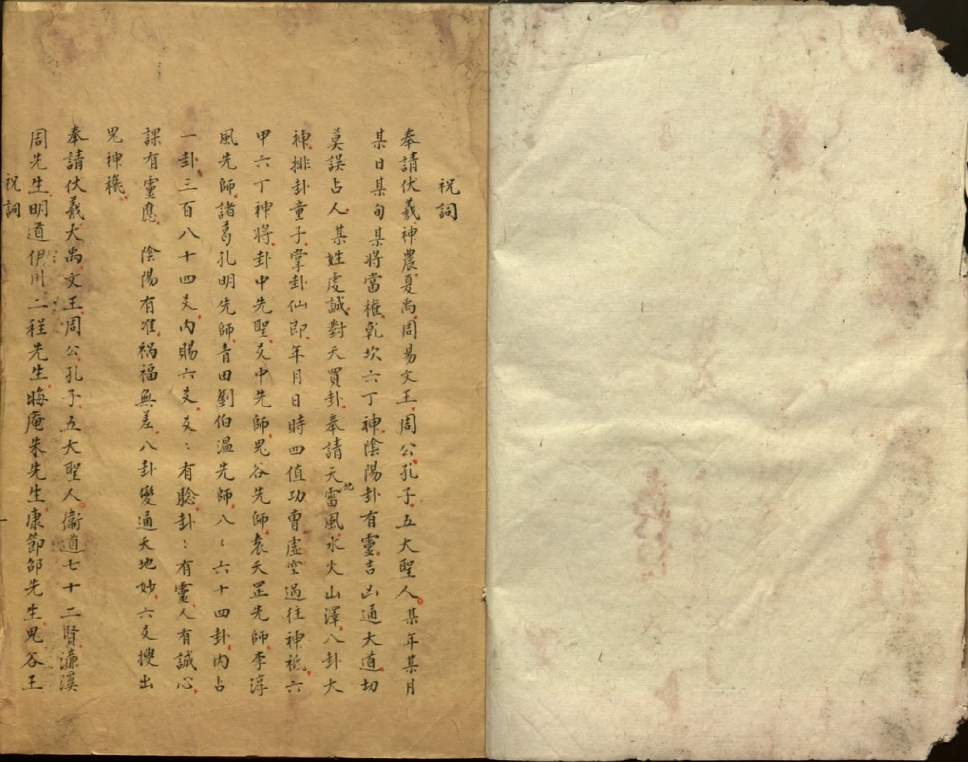 祝詞
奉請伏羲神農夏禹周易文王周公孔子五大聖人某年某月
某日某旬某將當權乾坎六丁神陰陽卦有靈吉凶通大道切
莫誤占人某姓虔誠對天買卦奉請天地雷風水火山澤八卦大
神排卦童子掌卦仙郎年月日時四值功曹虛空過往神祇六
甲六丁神將卦中先聖爻中先師鬼谷先師袁天罡先師李淳
風先師諸葛孔明先師青田劉伯温先師八〻六十四卦内占
一卦三百八十四爻内賜六爻爻〻有騐卦〻有靈人有誠心
課有靈應陰陽有准禍福無差八卦變通天地妙六爻搜出
鬼神機
奉請伏羲大禹文王周公孔子五大聖人衛道七十二賢濂溪
周先生明道伊川二程先生晦庵朱先生康節邵先生鬼谷王
祝詞